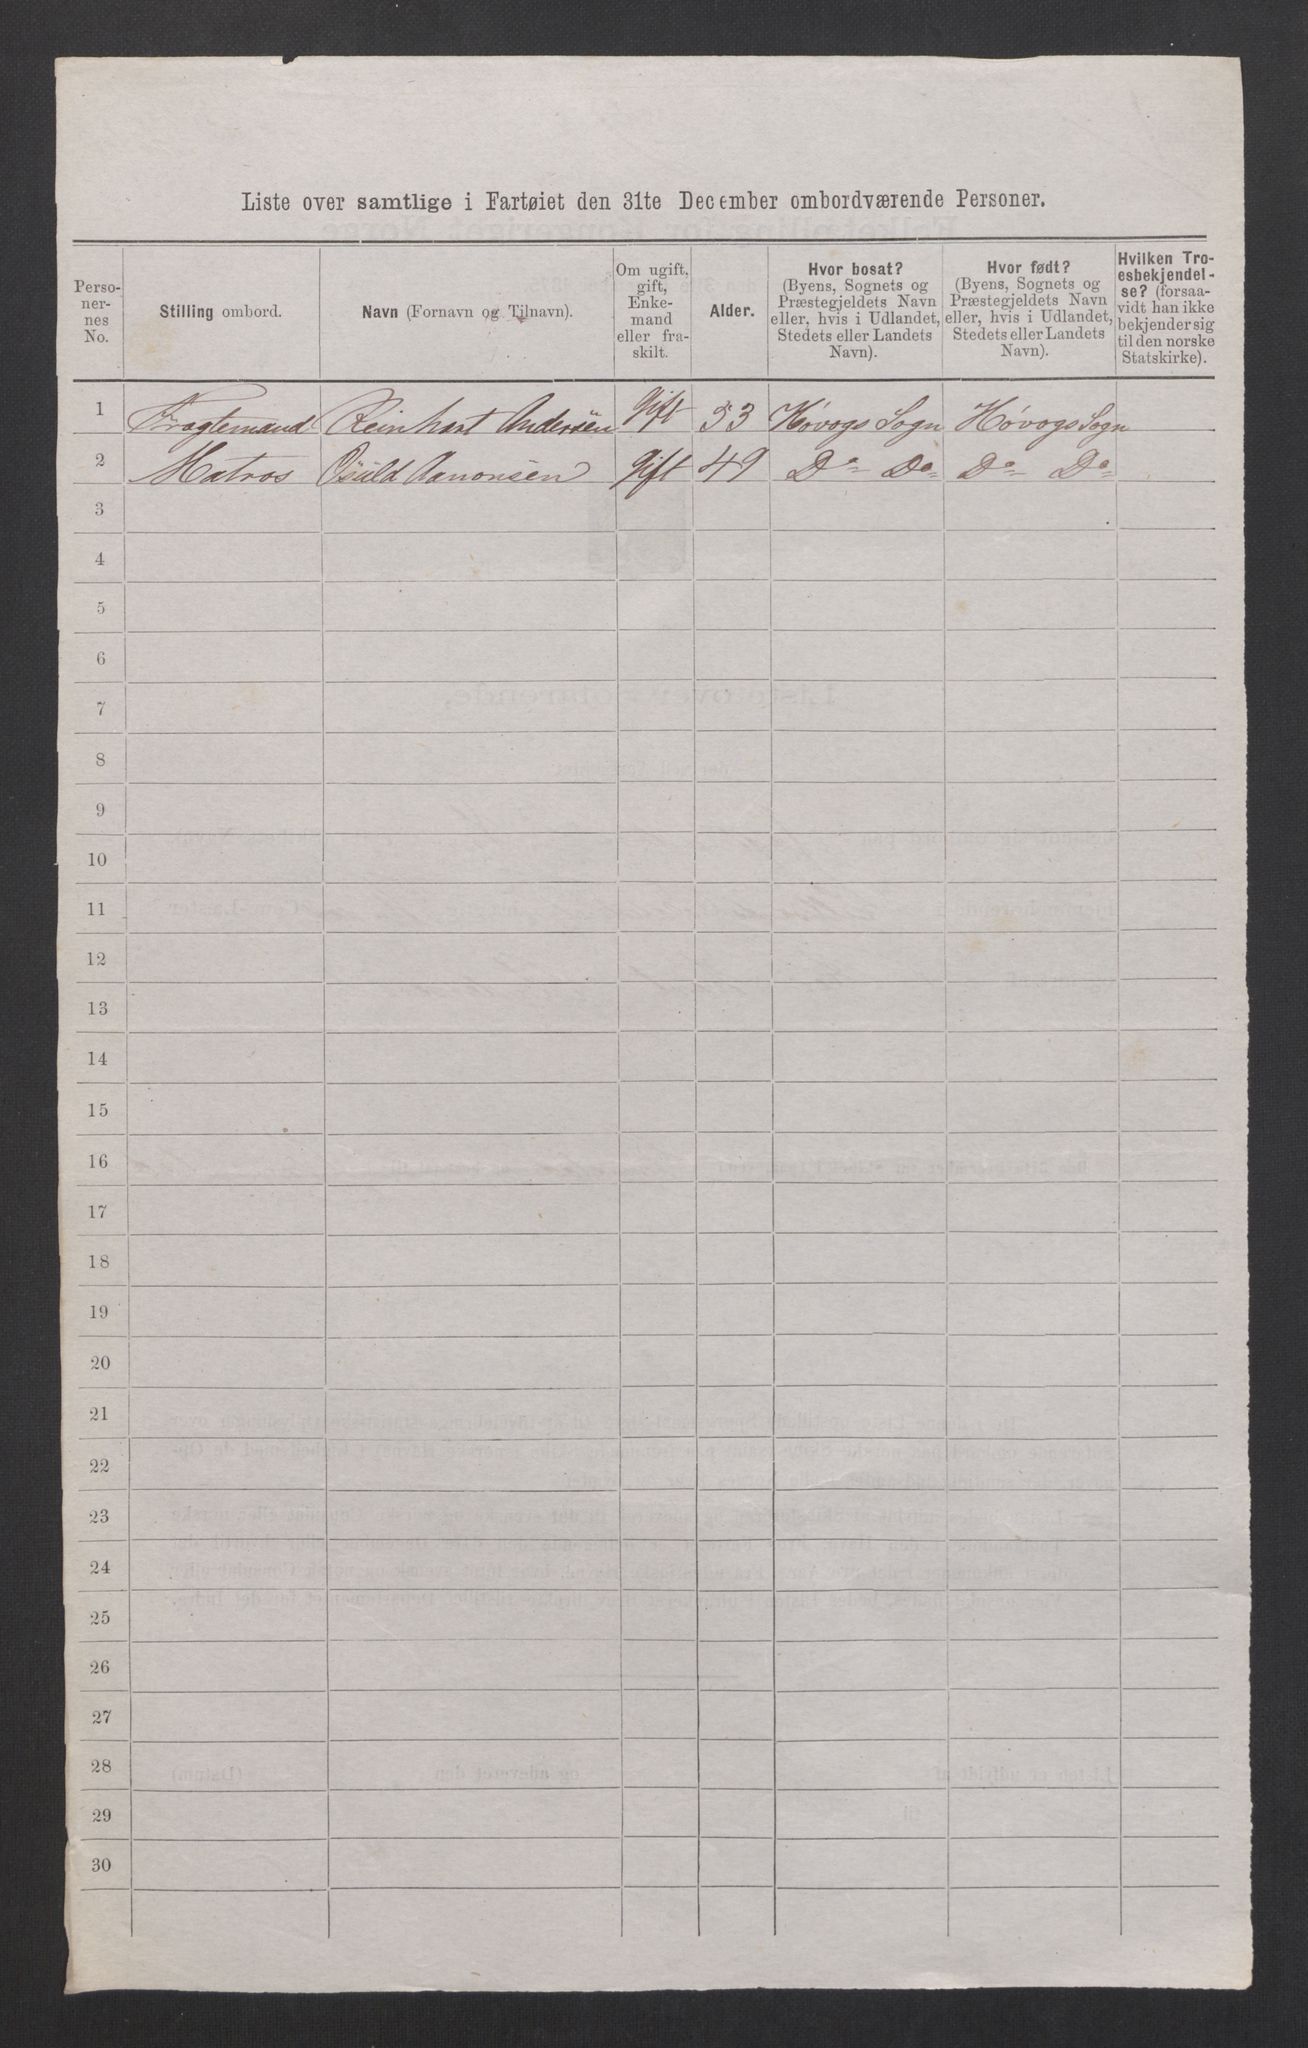 Liste over samtlige i Fartøiet den 31te December ombordværende Personer.
Perso-
ner-
nes
No.
Stilling ombord.
Navn (Fornavn og Tilnavn).
Om ugift,
gift,
Enke-
mand
eller fra-
skilt.
Alder.
Hvor bosat?
(Byens, Sognets og
Præstegjeldets Navn
eller, hvis i Udlandet,
Stedets eller Landets
Navn).
Hvor født?
(Byens, Sognets og
Præstegjeldets Navn
eller, hvis i Udlandet,
Stedets eller Landets
Navn).
Hvilken Tro-
esbekjendel-
se? (forsaa-
vidt han ikke
bekjender sig
til den norske
Statskirke).
1 Fragtemand Reinhart Andersen Gift 53 Høvogs Sogn Høvogs Sogn
2 Matros Osuld Aanonsen Gift 49 Do Do Do Do
3
4
5
6
7
8
9
10
11
12
13
14
15
16
17
18
19
20
21
22
23
24
25
26
27
28
29
30